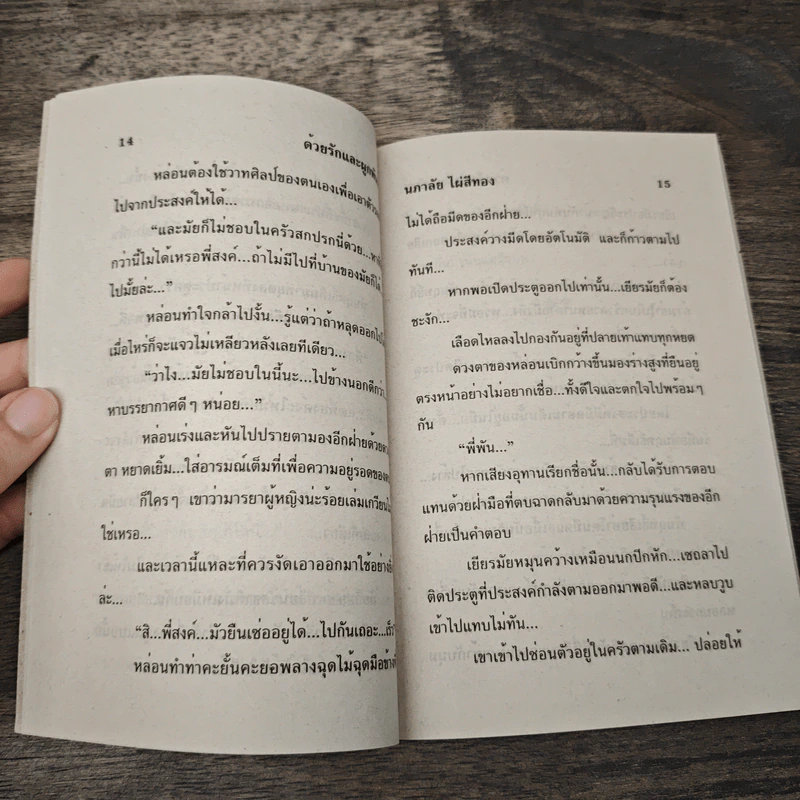 14
ด้วยรักและผูกพัน
หล่อนต้องใช้วาทศิลป์ของตนเองเพื่อเอาตัว
ไปจากประสงค์ให้ได้...
“และมัยก็ไม่ชอบในครัวสกปรกนี่ด้วย...
กว่านี้ไม่ได้เหรอพี่สงค์...ถ้าไม่มีไปที่บ้านของมัยก็ได้
ไปมั้ยล่ะ...”
หล่อนทำใจกล้าไปงั้น...รู้แต่ว่าถ้าหลุดออกไป
เมื่อไหร่ก็จะแจวไม่เหลียวหลังเลยทีเดียว...
“ว่าไง...มัยไม่ชอบในนี้นะ...ไปข้างนอกดีกว่า
หาบรรยากาศดีๆ หน่อย...”
หล่อนเร่งและหันไปปรายตามองอีกฝ่ายด้วย
ตา หยาดเยิ้ม...ใส่อารมณ์เต็มที่เพื่อความอยู่รอดของ
ก็ใครๆ เขาว่ามารยาผู้หญิงน่ะร้อยเล่มเกวียน
ใช่เหรอ...
และเวลานี้แหละที่ควรงัดเอาออกมาใช้อย่าง
ล่ะ...
“สิ...พี่สงค์...มัวยืนเซ่ออยู่ได้...ไปกันเถอะ...เร็ว
หล่อนทำท่าคะยั้นคะยอพลางฉุดไม้ฉุดมือข้าง
นภาลัย ไผ่สีทอง
15
ไม่ได้ถือมีดของอีกฝ่าย...
ประสงค์วางมีดโดยอัตโนมัติ และก็ก้าวตามไป
ทันที...
หากพอเปิดประตูออกไปเท่านั้น...เยียรมัยก็ต้อง
ชะงัก...
เลือดไหลลงไปกองกันอยู่ที่ปลายเท้าแทบทุกหยด
ดวงตาของหล่อนเบิกกว้างขึ้นมองร่างสูงที่ยืนอยู่
ตรงหน้าอย่างไม่อยากเชื่อ...ทั้งดีใจและตกใจไปพร้อมๆ
กัน
“พี่พัน...”
หากเสียงอุทานเรียกชื่อนั้น...กลับได้รับการตอบ
แทนด้วยฝ่ามือที่ตบฉาดกลับมาด้วยความรุนแรงของอีก
ฝ่ายเป็นคำตอบ
เยียรมัยหมุนคว้างเหมือนนกปีกหัก...เซถลาไป
ติดประตูที่ประสงค์กำลังตามออกมาพอดี...และหลบวูบ
เข้าไปแทบไม่ทัน...
เขาเข้าไปซ่อนตัวอยู่ในครัวตามเดิม... ปล่อยให้